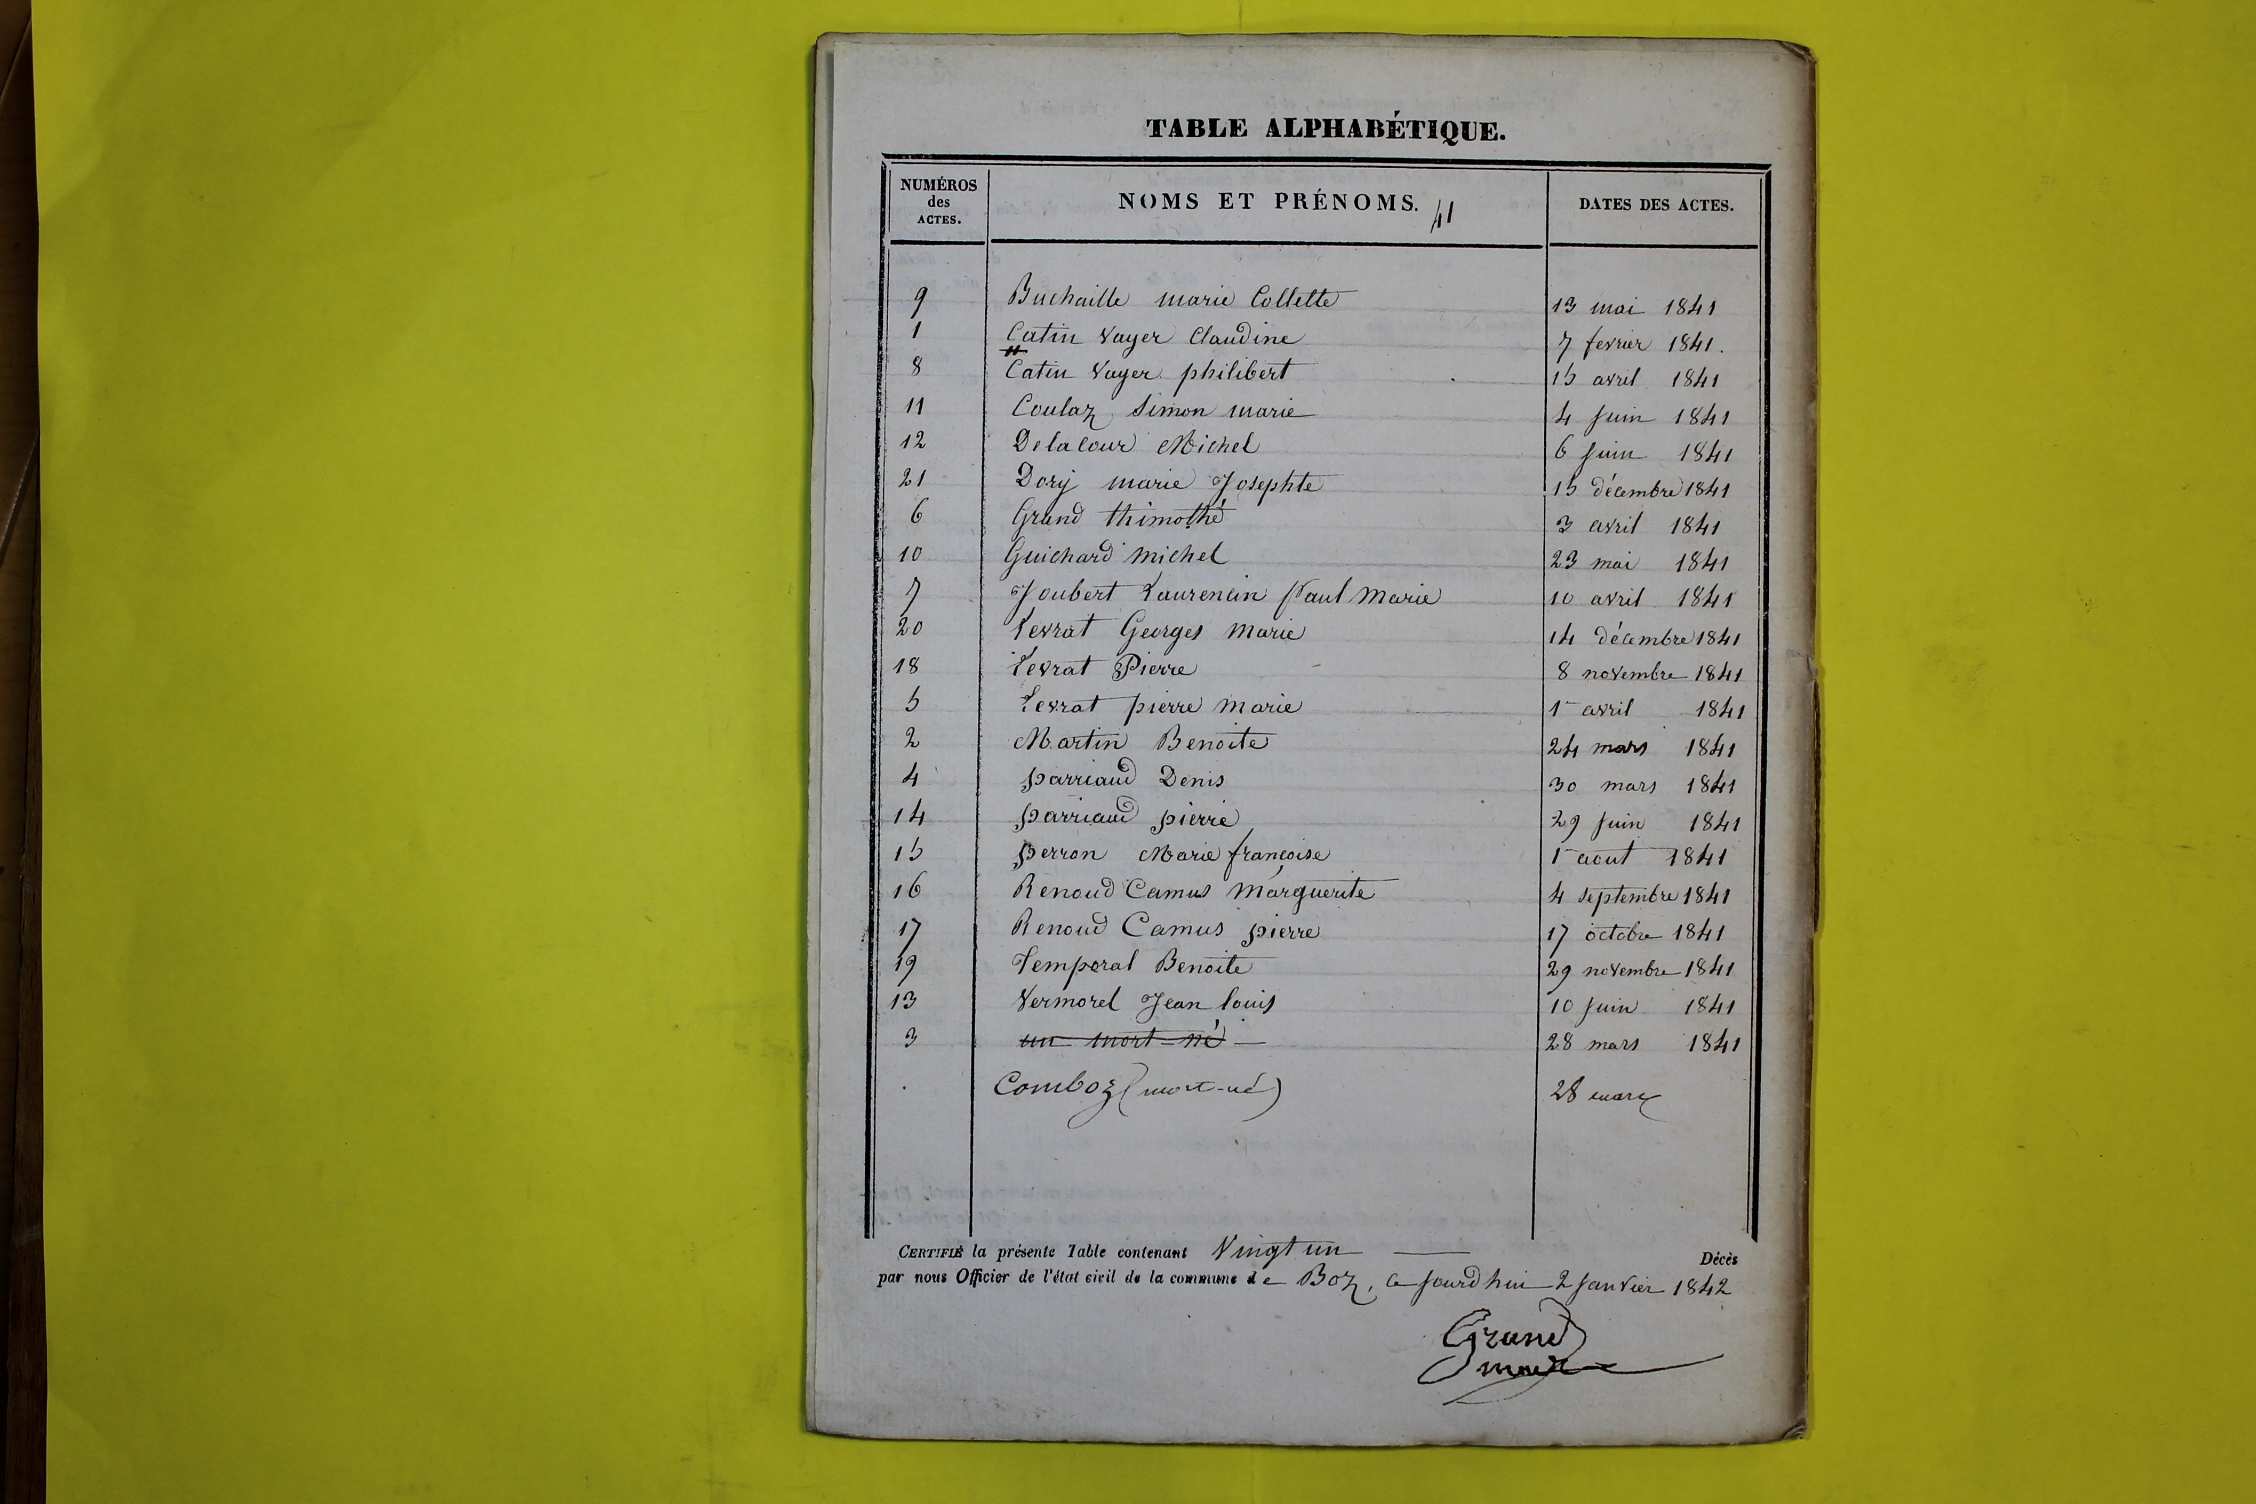 TABLE ALPHABÉTIQUE.
NUMÉROS des ACTES. NOMS ET PRÉNOMS. 41 DATES DES ACTES.
9 Buchaille marie Collette 13 mai 1841
1 Catin Vayer Claudine 7 fevrier 1841.
8 Catin Vayer philibert 15 avril 1841
11 Coulaz Simon marie 4 Juin 1841
12 Delacour Michel 6 Juin 1841
21 Dory marie Josephte 15 décembre 1841
6 Grand thimothé 3 avril 1841
10 Guichard michel 23 mai 1841
7 Joubert Laurencin Paul Marie 10 avril 1841
20 Levrat Georges Marie 14 décembre 1841
18 Levrat Pierre 8 novembre 1841
5 Levrat pierre marie 1er avril 1841
2 Martin Benoite 24 mars 1841
4 parriaud Denis 30 mars 1841
14 parriaud pierre 29 Juin 1841
15 perron Marie françoise 1er aout 1841
16 Renoud Camus Marguerite 4 septembre 1841
17 Renoud Camus pierre 17 octobre 1841
19 Temporal Benoite 29 novembre 1841
13 Vermorel Jean louis 10 Juin 1841
3 un mort-né 28 mars 1841
Comboz (mort-né) 28 mars
CERTIFIÉ la présente Table contenant Vingt un Décès
par nous Officier de l'état civil de la commune de Boz, ce jourd'hui 2 Janvier 1842
Grand
maire